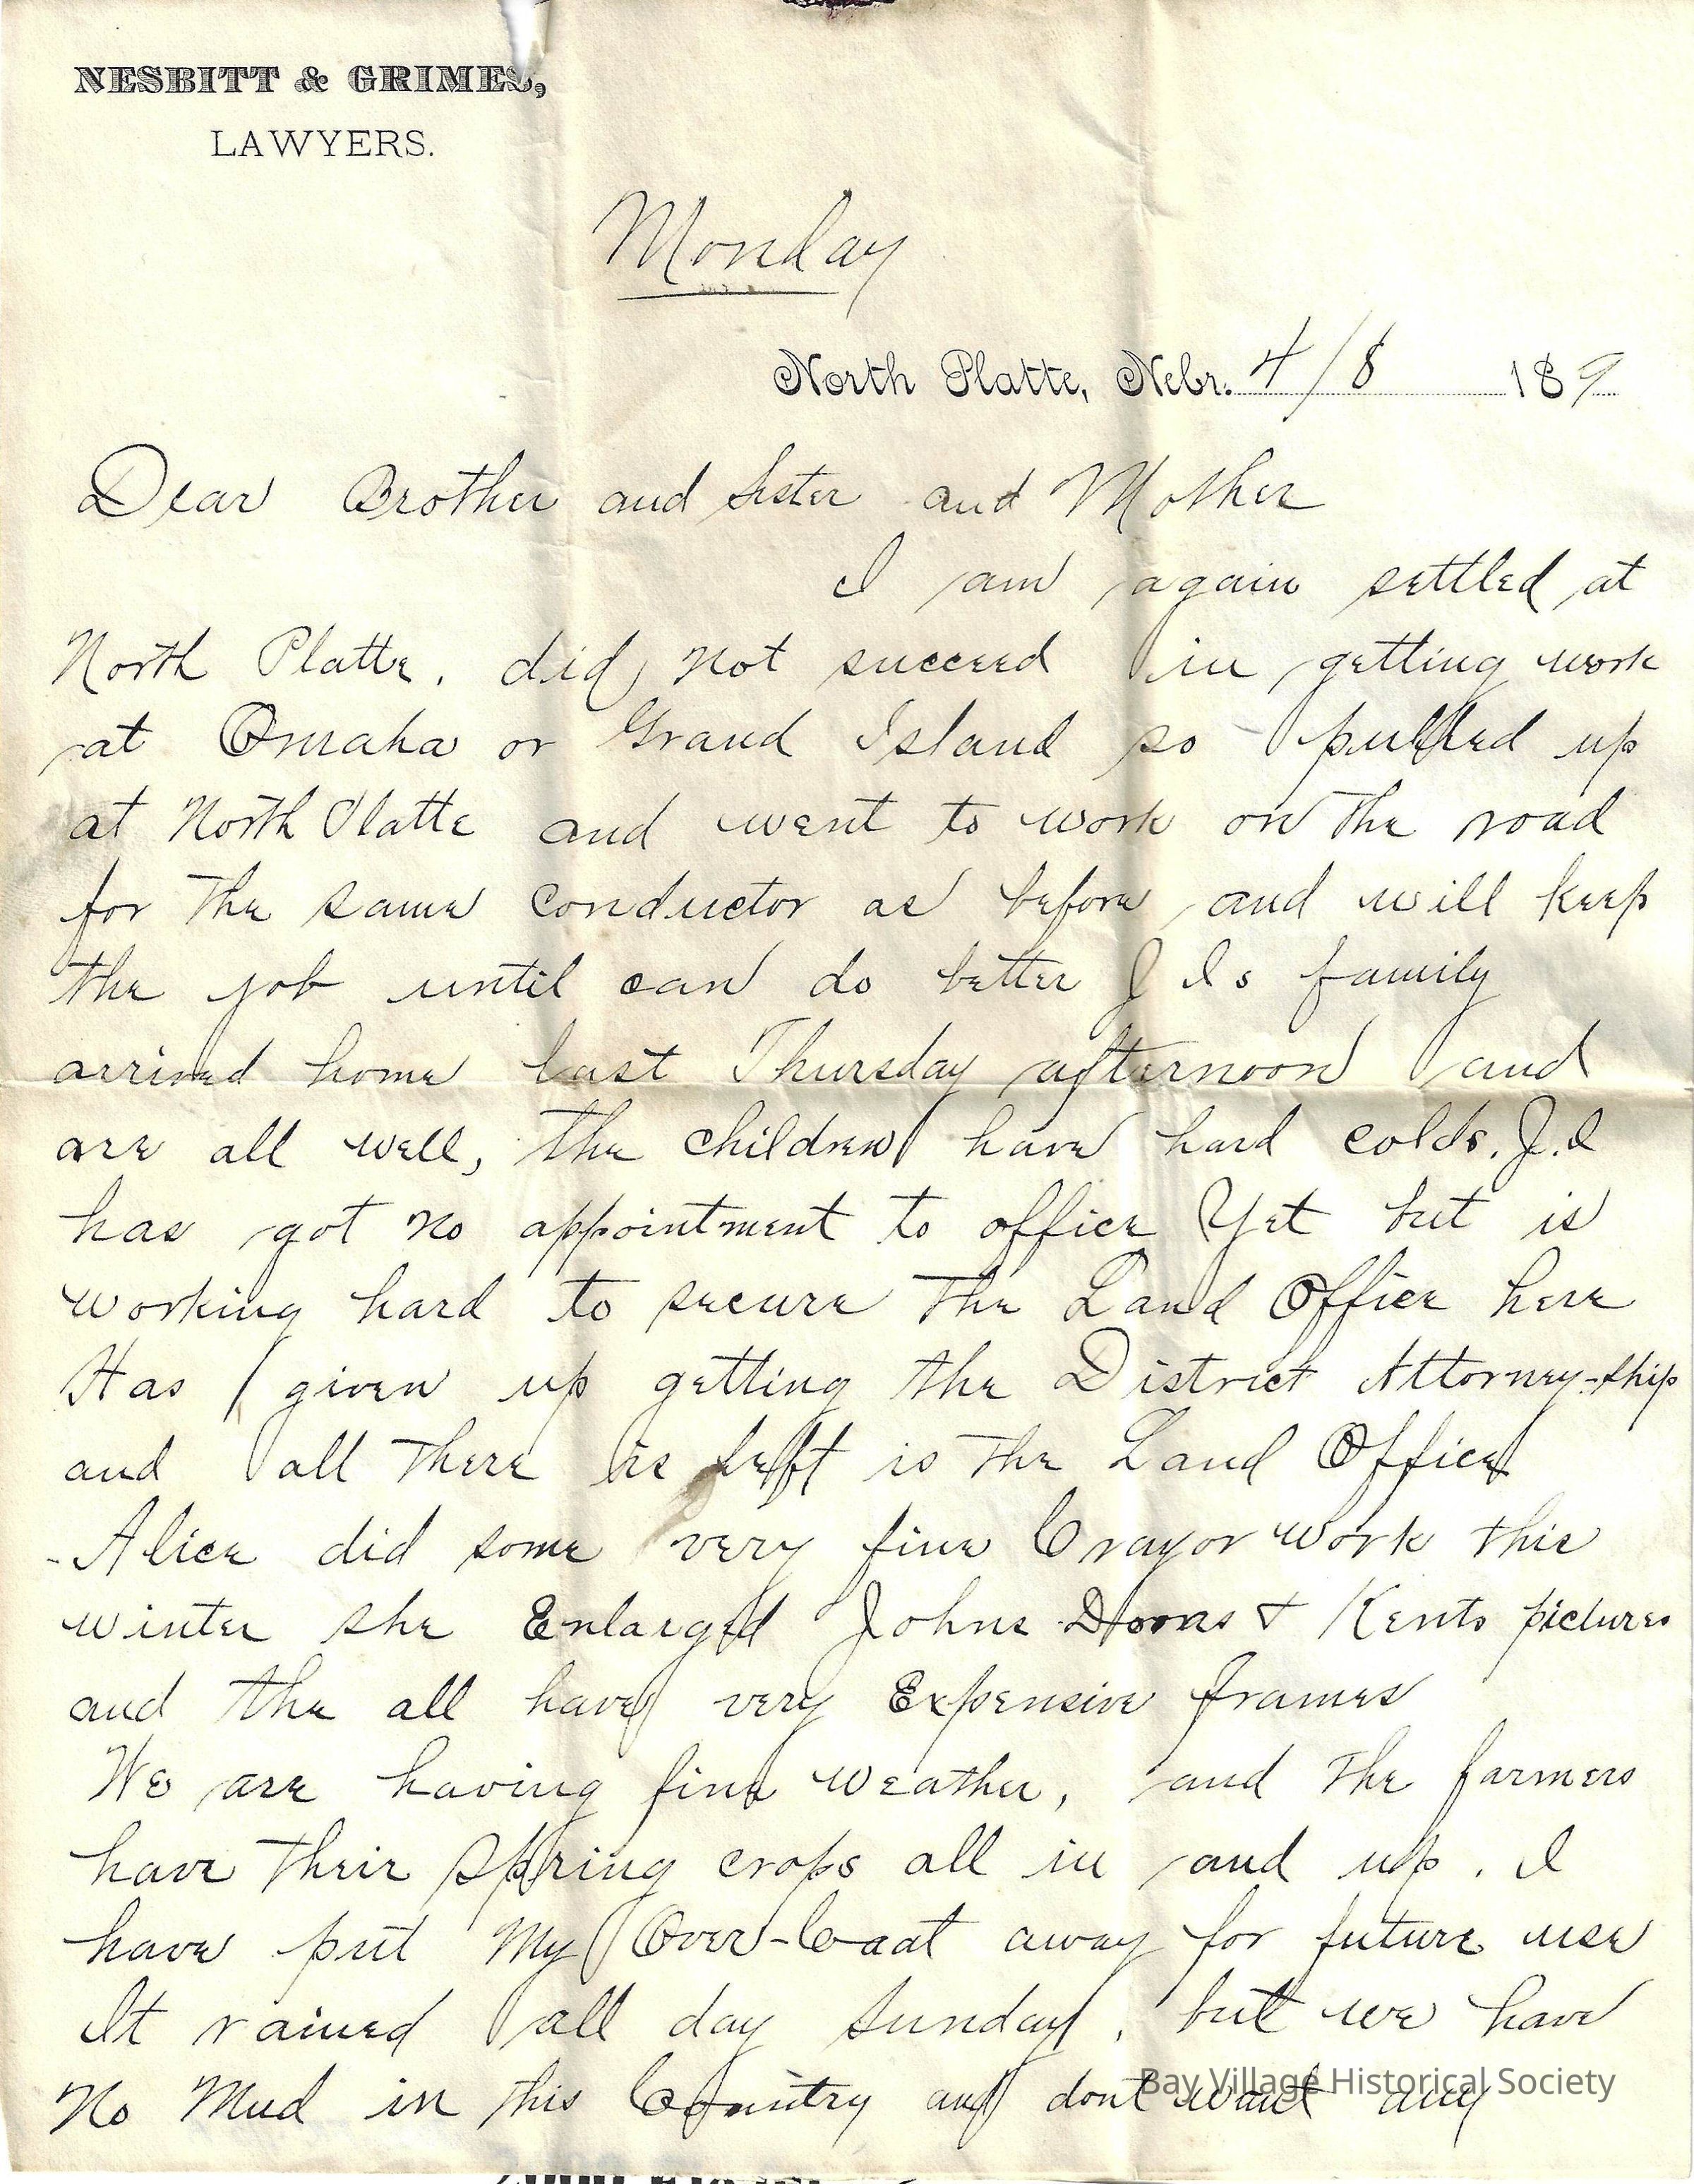 NESBITT & GRIMES,
LAWYERS.
Monday
North Platte, Nebr. 4/8 189
Dear Brother and Sister and Mother
I am again settled at
North Platte. did not succeed in getting work
at Omaha or Grand Island so pulled up
at North Platte and went to work on the road
for the same Conductor as before and will keep
the job until can do better J Is family
arrived home last Thursday afternoon and
are all well, the children have hard colds. J.I
has got no appointment to office Yet but is
working hard to secure the Land Office here
Has given up getting the District Attorney-ship
and all there is left is the Land Office
-Alice did some very fine Crayor work this
winter she Enlarged Johns & Kents pictures
and the all have very Expensive frames
We are having fine weather, and the farmers
have their Spring crops all in and up. I
have put My Over-Coat away for future use
It rained all day Sunday, but we have
No Mud in this Country and dont want any
Bay Village Historical Society